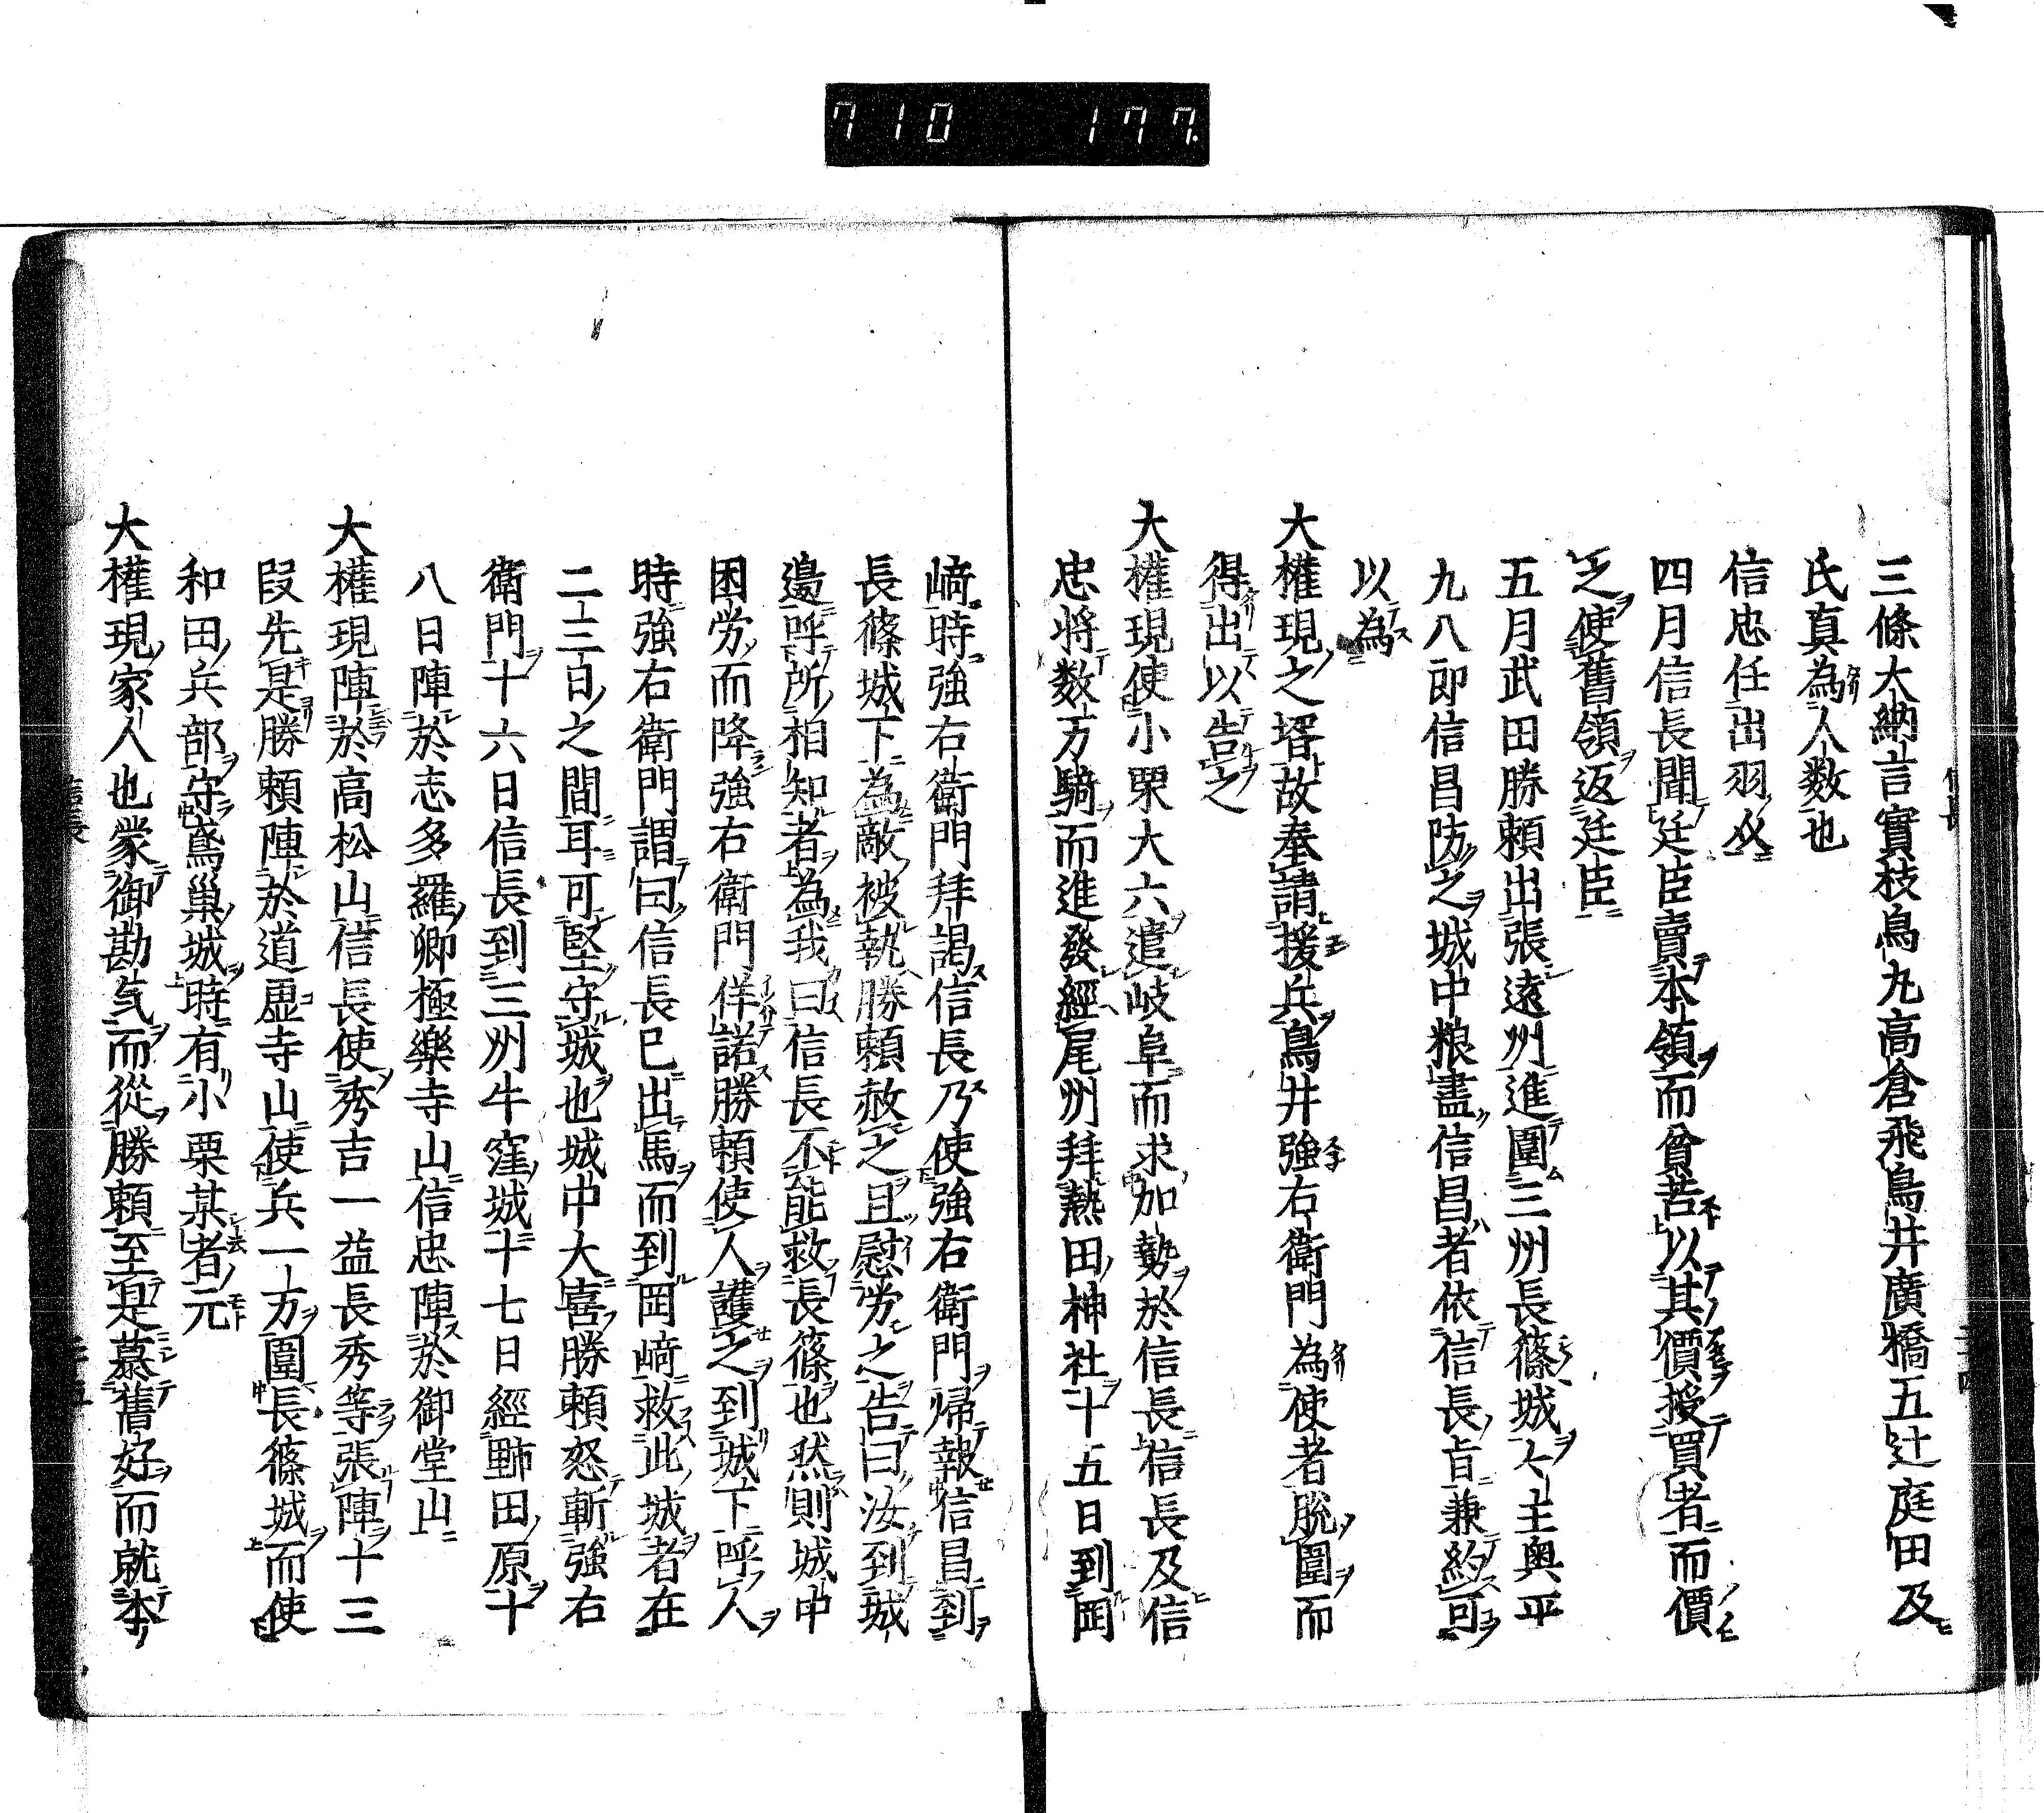 710 177.
三條大納言實枝鳥丸高倉飛鳥井廣橋五辻庭田及
氏真為人数也
信忠任出羽介
四月信長聞廷臣賣本領而貧苦以其價授買者而價
之使舊領返廷臣
五月武田勝頼出張遠州進圍三州長篠城々主奥平
九八郎信昌防之城中粮盡信昌者依信長旨兼約可
以為
大權現之壻故奉請援兵鳥井強右衛門為使者脱圍而
得出以告之
大權現使小栗大六遣岐阜而求加勢於信長信長及信
忠将数万騎而進發經尾州拜熱田神社十五日到岡
﨑時強右衛門拜謁信長乃使強右衛門帰報信昌到
長篠城下為敵被執勝頼赦之且慰労之告曰汝到城
邊呼所相知者為我曰信長不能救長篠也然則城中
困労而降強右衛門佯諾勝頼使人護之到城下呼人
時強右衛門謂曰信長已出馬而到岡﨑救此城者在
二三日之間耳可堅守城也城中大喜勝頼怒斬強右
衛門十六日信長到三州牛窪城十七日經野田原十
八日陣於志多羅郷極樂寺山信忠陣於御堂山
大權現陣於高松山信長使秀吉一益長秀等張陣十三
段先是勝頼陣於道虚寺山使兵一方圍長篠城而使
和田兵部守鳶巢城時有小栗某者元
大權現家人也蒙御勘气而從勝頼至是慕舊好而就本